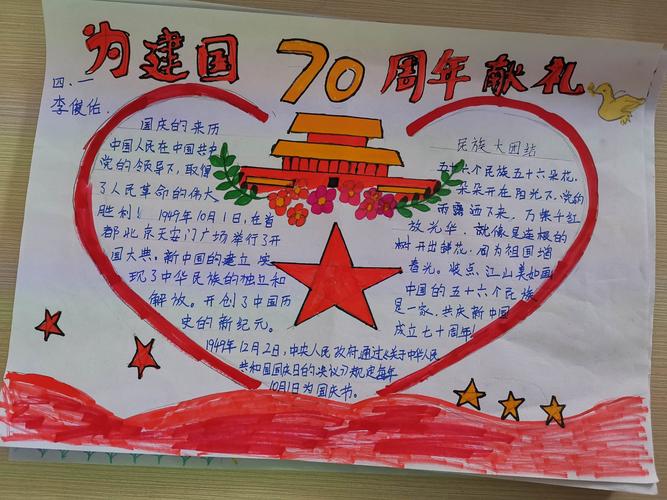 为建国70周年献礼
四、一
李俊佑
国庆的来历
中国人民在中国共
党的领导下,取得
了人民革命的伟大
胜利!1949年10月1日,在首
都北京天安门广场举行了开
国大典。新中国的建立,实
现了中华民族的独立和
解放。开创了中国历
史的新纪元。
1949年12月2日,中央人民政府通过《关于中华人民
共和国国庆日的决议》规定每年
10月1日为国庆节。
民族大团结
五十六个民族五十六朵花,
朵朵开在阳光下,党的
雨露洒下来,万紫千红
放光华,就像是连根的
树开出鲜花,同为祖国增
春光。装点江山美如画
中国的五十六个民族
是一家,共庆新中国
成立七十周年!